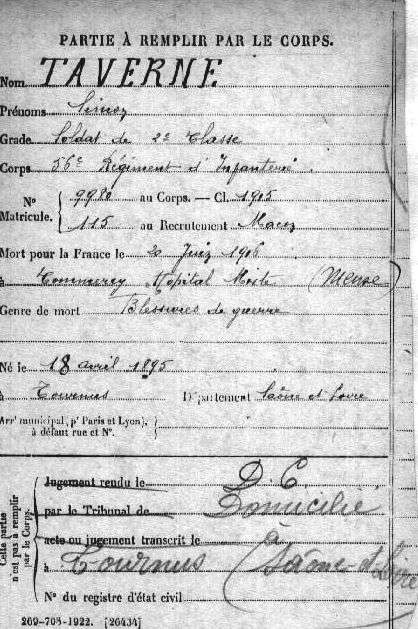 PARTIE À REMPLIR PAR LE CORPS.
Nom TAVERNE
Prénoms
Grade Soldat de 2e Classe
Corps 56e Régiment d'Infanterie.
N° Matricule. { 9980 au Corps. — Cl. 1915
115 au Recrutement Macon
Mort pour la France le 20 Juin 1916
à Commercy Hôpital Mixte (Meuse)
Genre de mort Blessures de guerre
Né le 18 avril 1895
à Tournus Département Saône et Loire
Arrt municipal (pr Paris et Lyon),
à défaut rue et N°.
Cette partie n'est pas à remplir par le Corps.
Jugement rendu le D. C
par le Tribunal de Domicilié
acte ou jugement transcrit le à
à Tournus Saône et Loire
N° du registre d'état civil
269-708-1922. [26434]